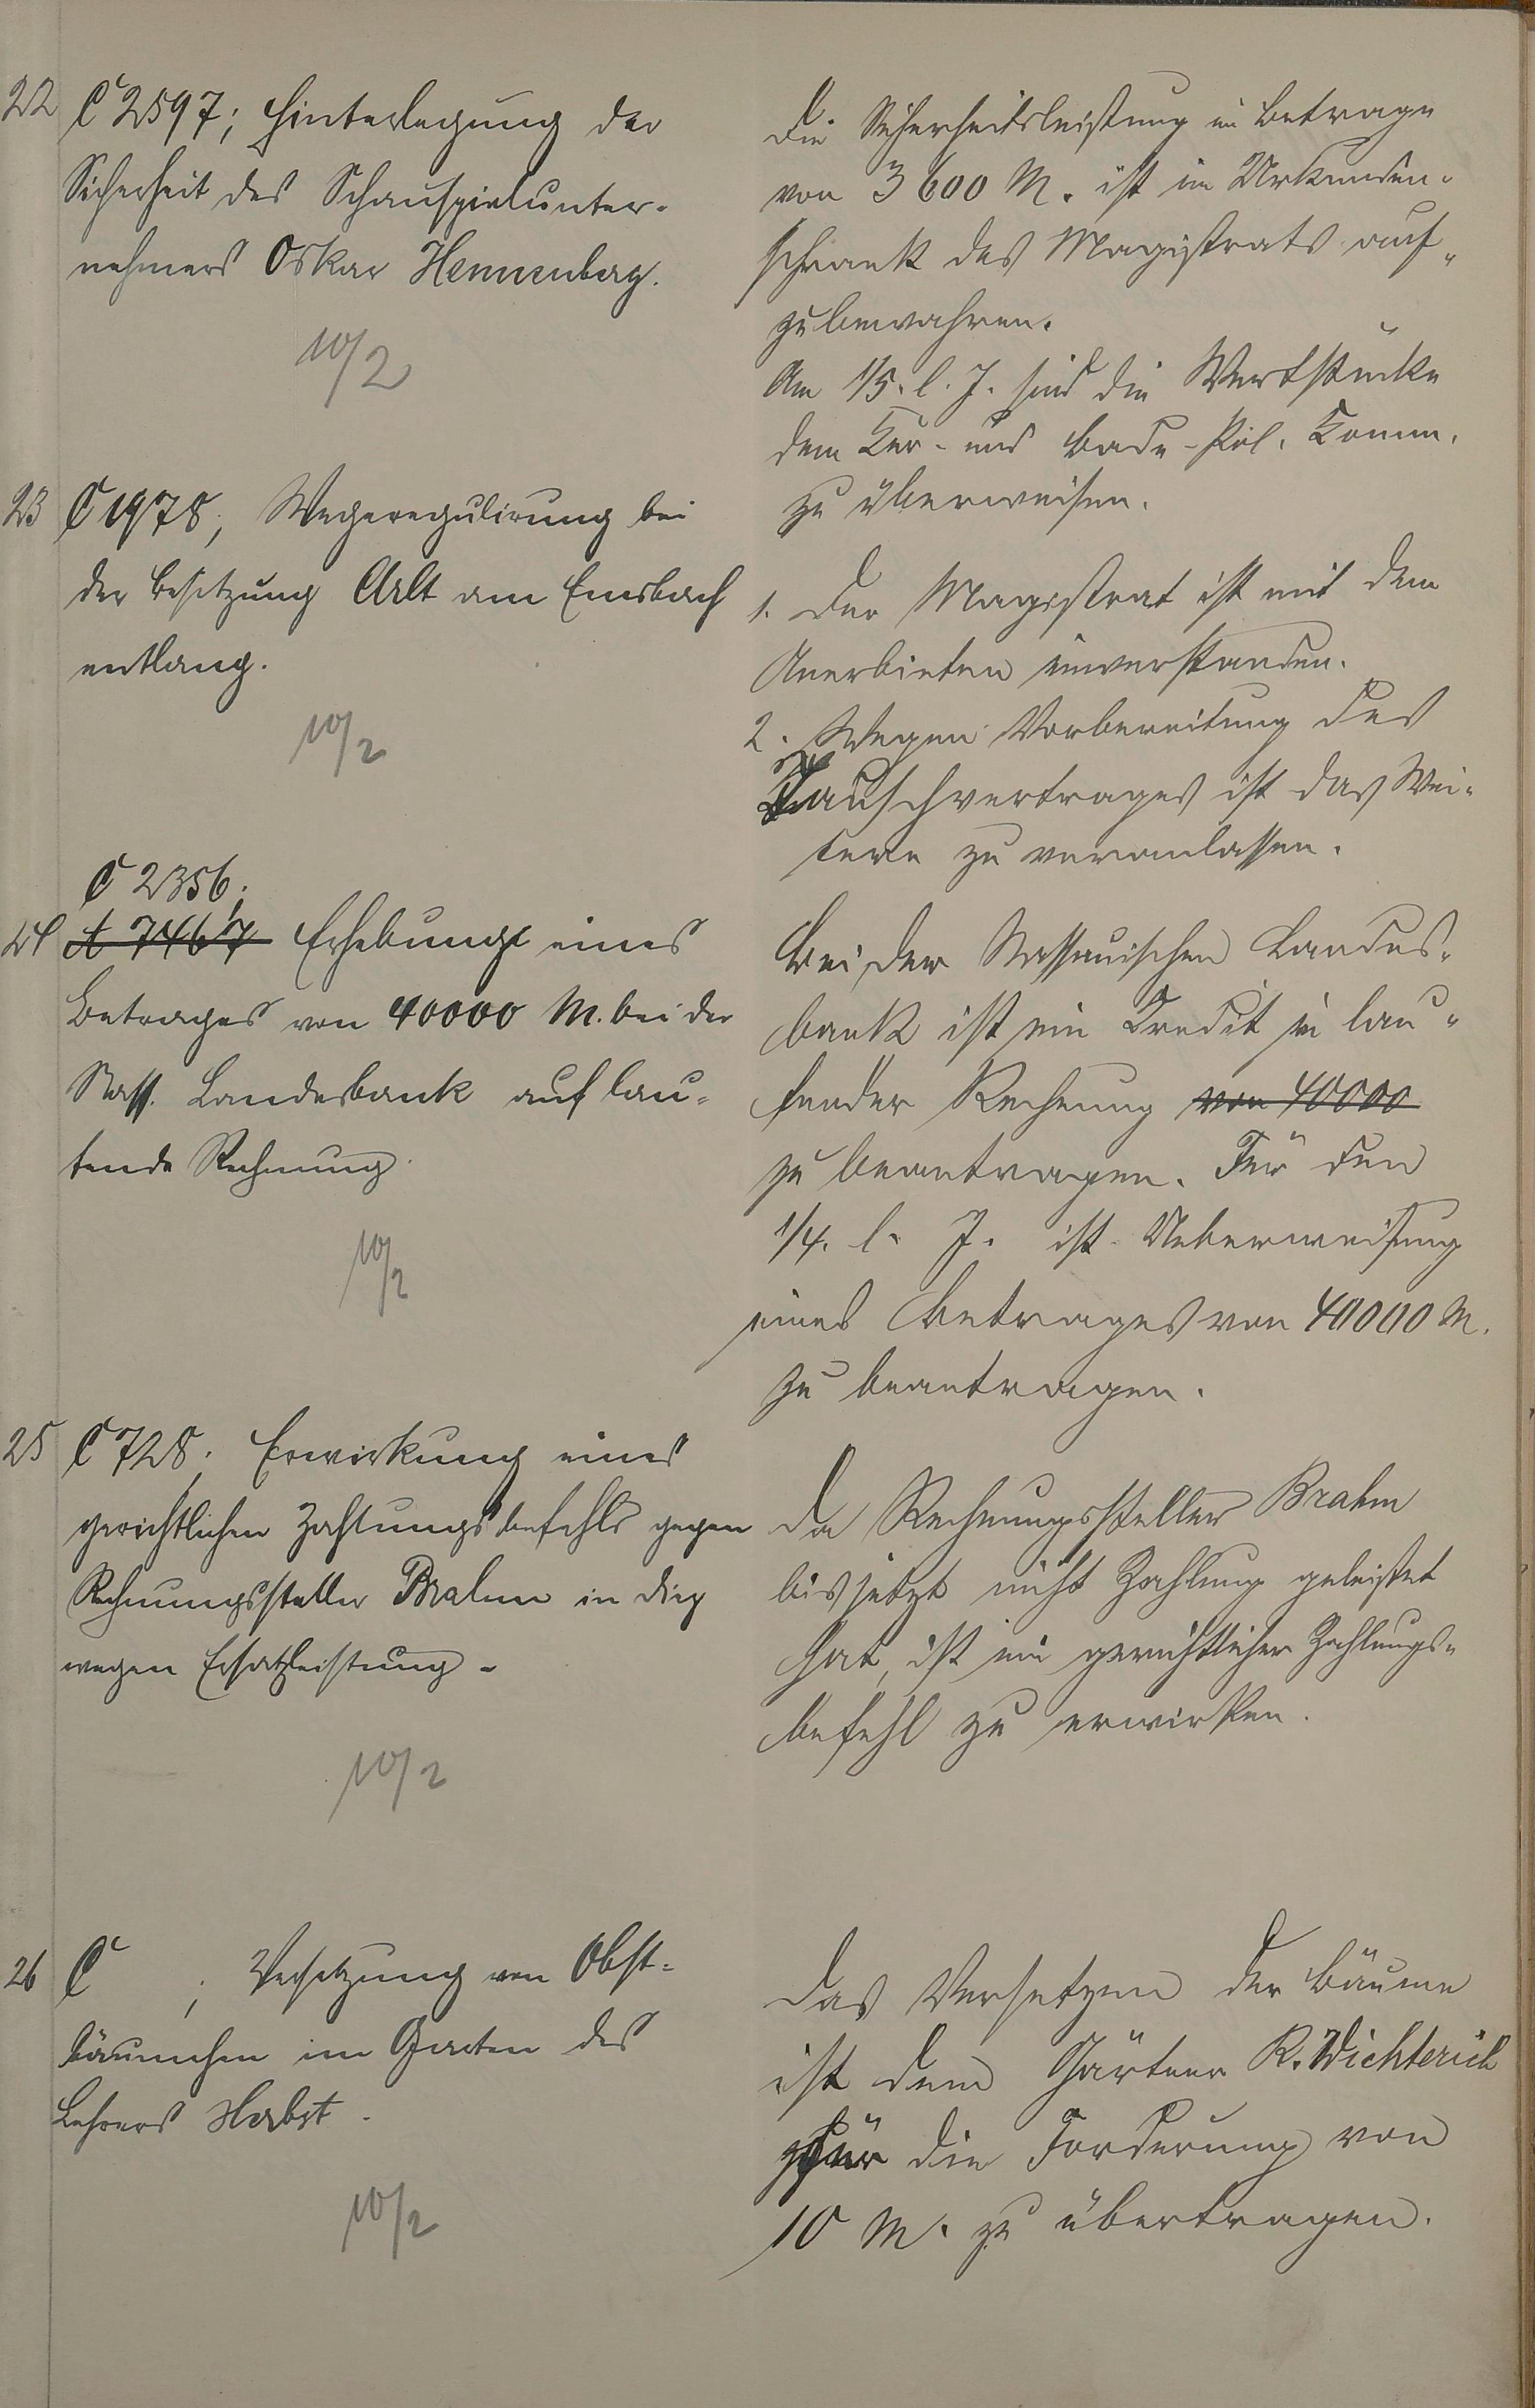 22 C 2597; Hinterlegung der
Sicherheit des Schauspielunter-
nehmers Oskar Hennenberg.
10/2
Die Sicherheitsleistung im Betrage
von 3600 M. ist im Urkunden-
schrank des Magistrats auf-
zubewahren.
Am 1/5. l. J. sind die Wertstücke
dem Kur- und Bade-Pol. Komm.
zu überweisen.
23 C 1978; Wegeregulirung bei
der Besitzung Arlt am Emsbach
entlang.
10/2
1. Der Magistrat ist mit dem
Anerbieten einverstanden.
2. Wegen Vorbereitung des
Tauschvertrages ist das Wei-
tere zu veranlassen.
C 2356;
24 A 7467 Erhebung eines
Betrages von 40000 M. bei der
Nass. Landesbank auf lau-
fende Rechnung.
10/2
Bei der Nassauischen Landes-
bank ist ein Credit in lau-
fender Rechnung von 40000
zu beantragen. Für den
1/4. l. J. ist Ueberweisung
eines Betrages von 40000 M.
zu beantragen.
25 C 728; Erwirkung eines
gerichtlichen Zahlungsbefehls gegen
Rechnungssteller Brahm in Diez
wegen Ersatzleistung.
10/2
Da Rechnungssteller Brahm
bis jetzt nicht Zahlung geleistet
hat, ist ein gerichtlicher Zahlungs-
befehl zu erwirken.
26 C ; Versetzung von Obst-
bäumchen im Garten des
Lehrers Habst.
10/2
Das Versetzen der Bäume
ist dem Gärtner R. Wichterich
für die Forderung von
10 M. zu übertragen.